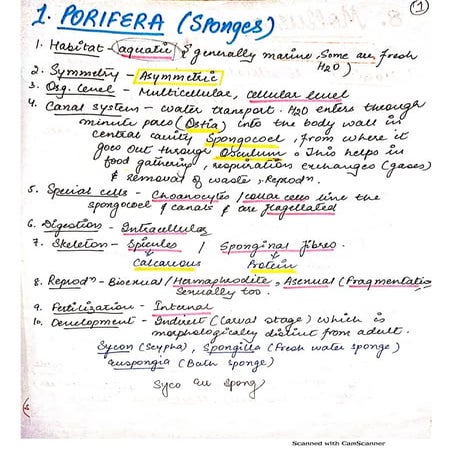 1. PORIFERA (Sponges)
1
1. Habitat - aquatic & generally marine, Some are fresh
H2O)
2. Symmetry - Asymmetric
3. Org. level - Multicellular, cellular level
4. Canal system - water transport. H2O enters through
minute pores (Ostia) into the body wall in
central cavity Spongocoel, from where it
goes out through Osculum. This helps in
food gathering, respiration exchanges (gases)
& removal of waste, Reprodn.
5. Special cells - Choanocytes / collar cells line the
spongocoel & canals & are flagellated
6. Digestion - Intracellular
7. Skeleton - Spicules / Sponginal fibres.
Calcareous Protein
8. Reprodn - Bisexual / Hemaphrodite, Asexual (Fragmentatio
Sexually too.
9. Fertilization - Internal
10. Development - Indirect (Larval stage) which is
morphologically distinct from adult.
Sycon (Scypha), Spongilla (Fresh water sponge)
Euspongia (Bath sponge)
Syco eu spong
Scanned with CamScanner